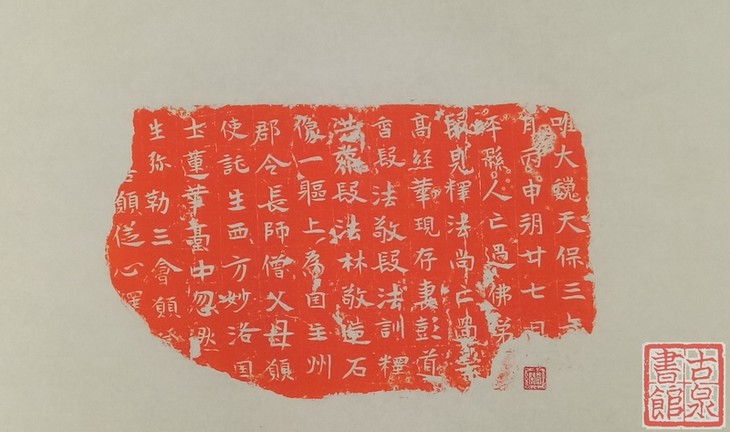 唯大魏天保三
月丙申朔廿七日
縣人亡過佛弟
兒釋法尚亡過
高經華現存妻彭道
香段法敬段法訓釋
段法林敬造石
像一軀上為帝国主州
郡令長師僧父母願
使託生西方妙洛国
士蓮華臺中忽
生弥勒三會願
願從心
古泉書館